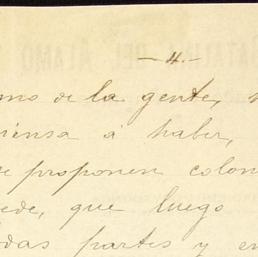 -4.-
mo de la gente,
piensa á haber,
e proponen colon
ede, que luego
das partes y en